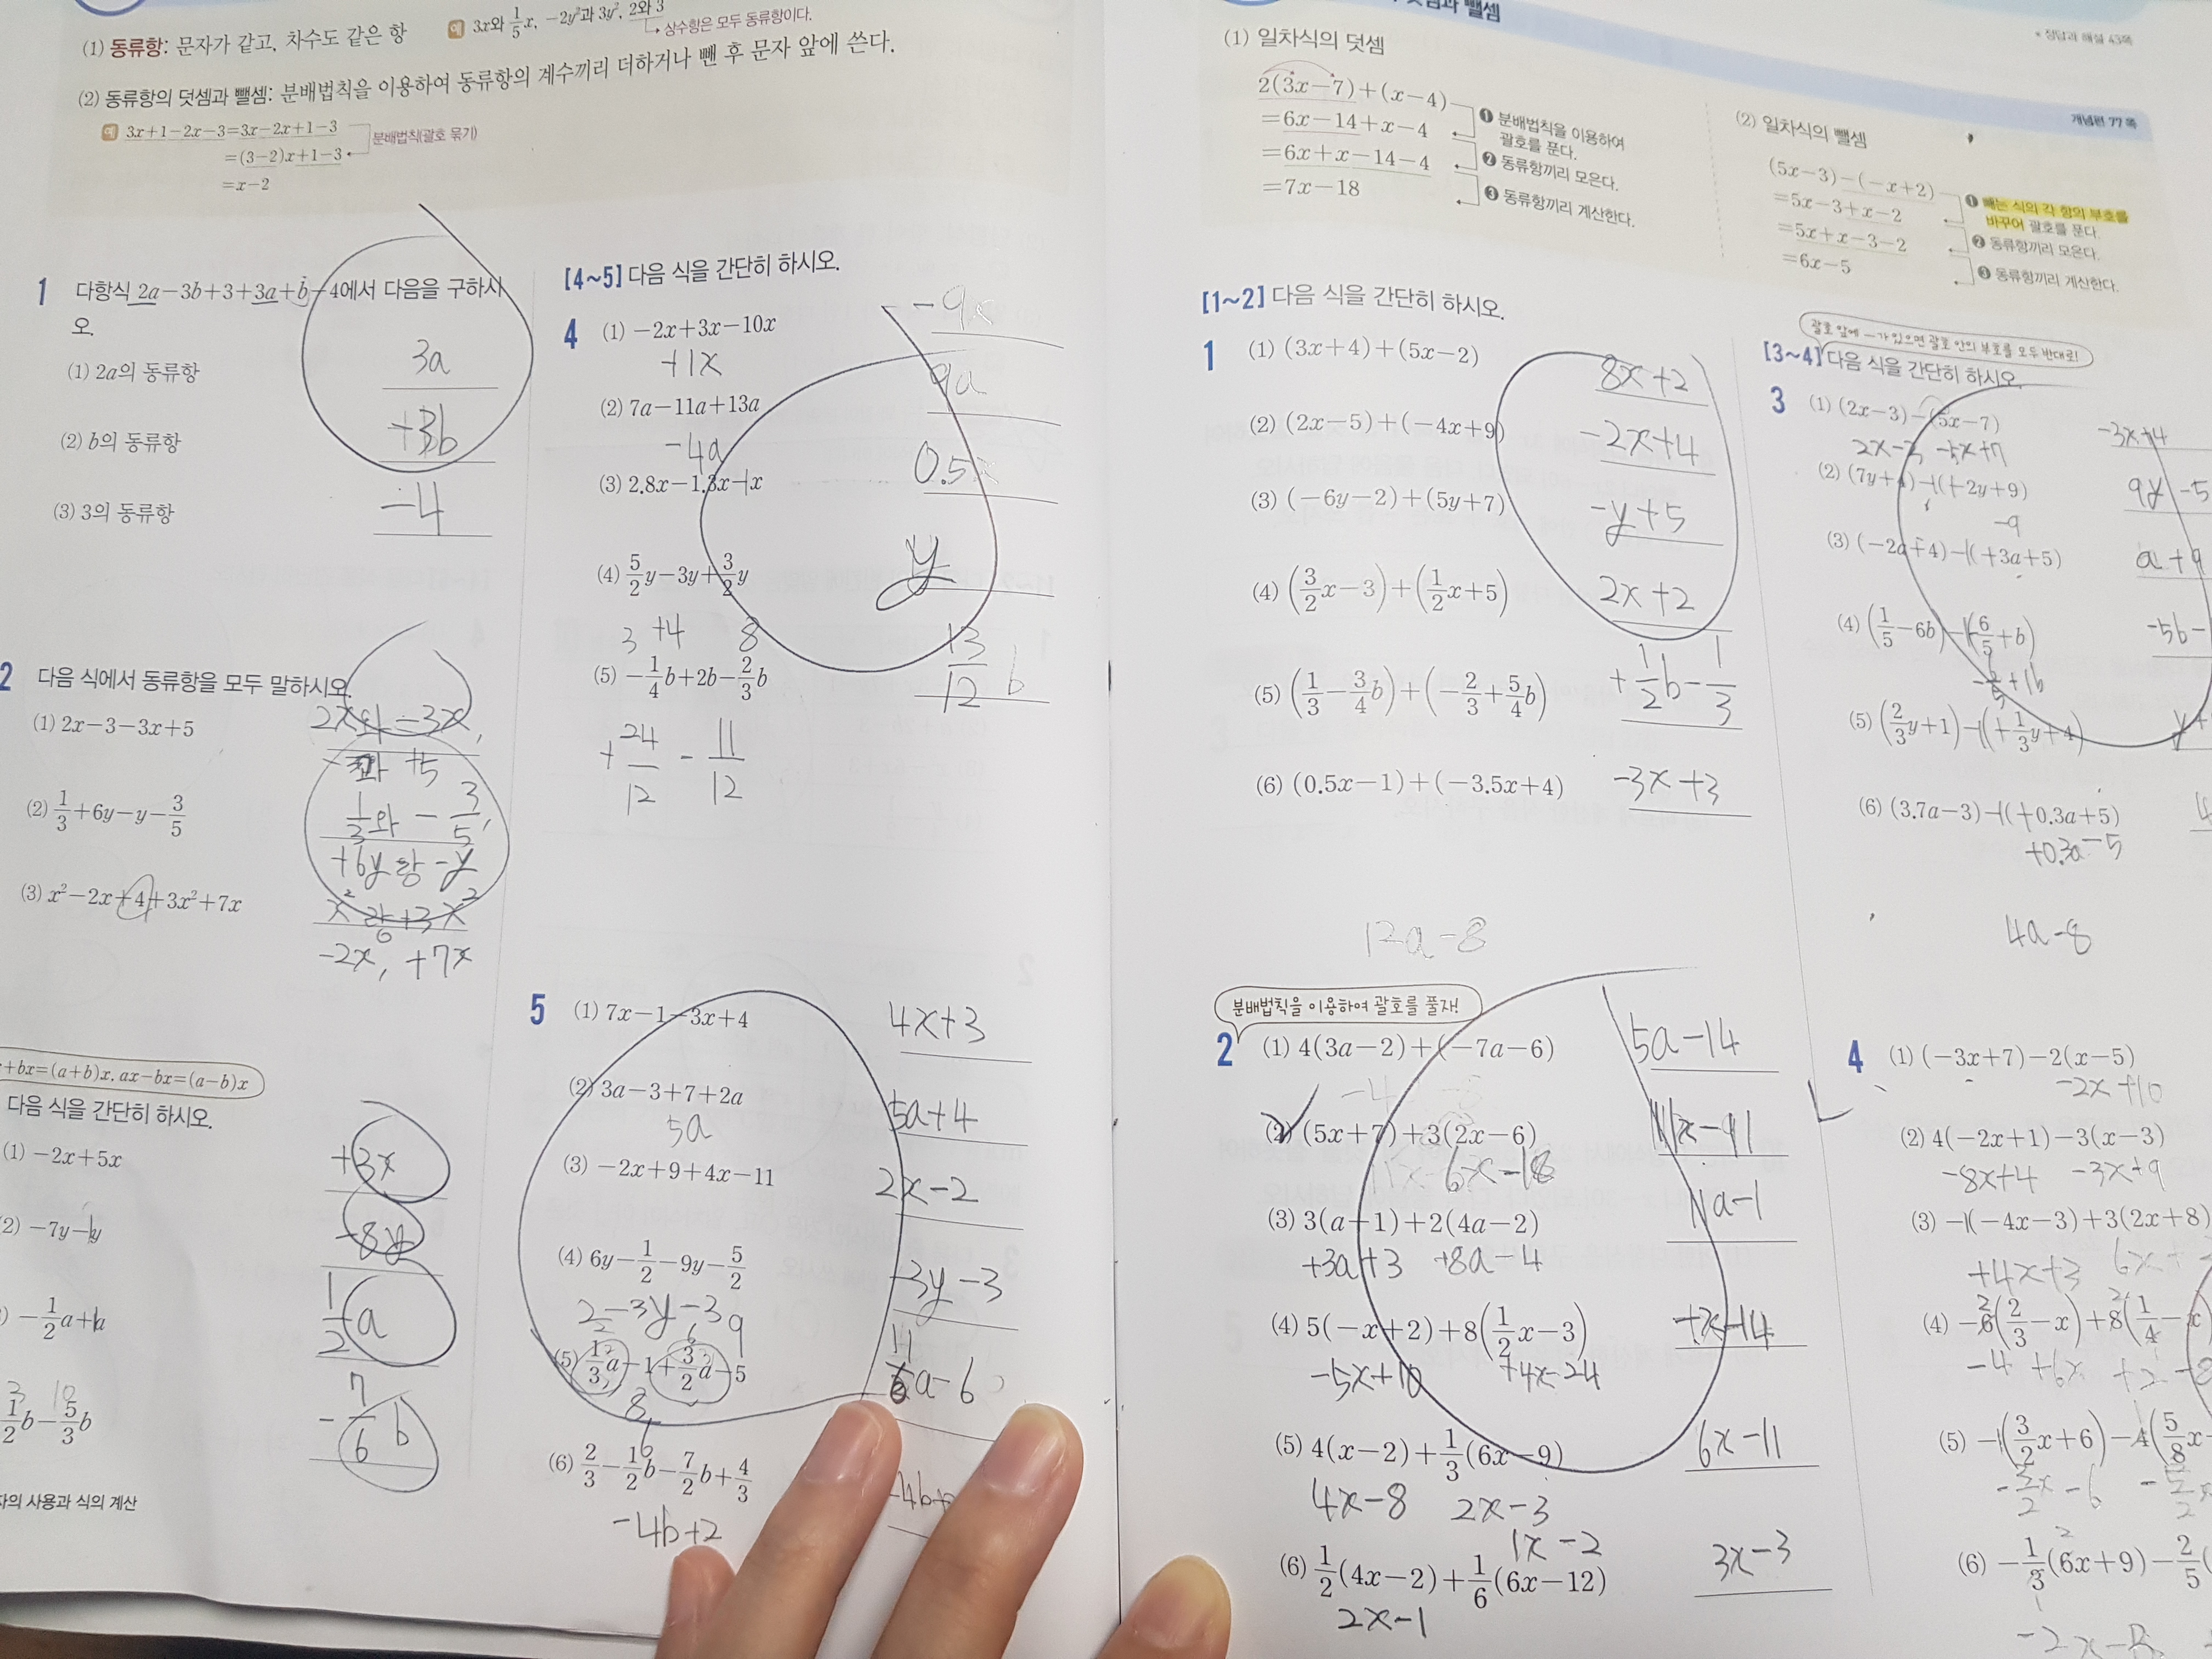 (1) 동류항: 문자가 같고, 차수도 같은 항
예 3x와 1/5x, −2y²과 3y², 2와 3
상수항은 모두 동류항이다.
(2) 동류항의 덧셈과 뺄셈: 분배법칙을 이용하여 동류항의 계수끼리 더하거나 뺀 후 문자 앞에 쓴다.
예 3x+1−2x−3=3x−2x+1−3
=(3−2)x+1−3
분배법칙(괄호 묶기)
=x−2
1 다항식 2a−3b+3+3a+b−4에서 다음을 구하시
오.
(1) 2a의 동류항
3a
(2) b의 동류항
+3b
(3) 3의 동류항
−4
2 다음 식에서 동류항을 모두 말하시오.
(1) 2x−3−3x+5
2x와 −3x,
와 +5
(2) 1/3+6y−y−3/5
1/3와 −3/5,
+6y랑 −y
(3) x²−2x+4+3x²+7x
x²랑 +3x²
−2x, +7x
+bx=(a+b)x, ax−bx=(a−b)x
다음 식을 간단히 하시오.
(1) −2x+5x
+3x
(2) −7y−y
−8y
) −1/2a+a
1/2a
3 10
1/2b−5/3b
−7/6b
자의 사용과 식의 계산
[4~5] 다음 식을 간단히 하시오.
4 (1) −2x+3x−10x
−9x
+1x
(2) 7a−11a+13a
9a
−4a
(3) 2.8x−1.3x−x
0.5x
(4) 5/2y−3y+3/2y
y
3 +4 8
(5) −1/4b+2b−2/3b
13/12 b
+24/12 − 11/12
5 (1) 7x−1−3x+4
4x+3
(2) 3a−3+7+2a
5a+4
5a
(3) −2x+9+4x−11
2x−2
(4) 6y−1/2−9y−5/2
−3y−3
−3y−3
(5) 1/3a−1+3/2a−5
11/6a−6
(6) 2/3−1/2b−7/2b+4/3
−4b+
−4b+2
덧셈과 뺄셈
* 정답과 해설 43쪽
개념편 77쪽
(1) 일차식의 덧셈
2(3x−7)+(x−4)
=6x−14+x−4
=6x+x−14−4
=7x−18
❶ 분배법칙을 이용하여
괄호를 푼다.
❷ 동류항끼리 모은다.
❸ 동류항끼리 계산한다.
(2) 일차식의 뺄셈
(5x−3)−(−x+2)
=5x−3+x−2
=5x+x−3−2
=6x−5
❶ 빼는 식의 각 항의 부호를
바꾸어 괄호를 푼다.
❷ 동류항끼리 모은다.
❸ 동류항끼리 계산한다.
[1~2] 다음 식을 간단히 하시오.
1 (1) (3x+4)+(5x−2)
8x+2
(2) (2x−5)+(−4x+9)
−2x+4
(3) (−6y−2)+(5y+7)
−y+5
(4) (3/2x−3)+(1/2x+5)
2x+2
(5) (1/3−3/4b)+(−2/3+5/4b)
+1/2b−1/3
(6) (0.5x−1)+(−3.5x+4)
−3x+3
12a−8
분배법칙을 이용하여 괄호를 풀자!
2 (1) 4(3a−2)+(−7a−6)
5a−14
(2) (5x+7)+3(2x−6)
11x−11
6x−18
(3) 3(a+1)+2(4a−2)
11a−1
+3a+3 +8a−4
(4) 5(−x+2)+8(1/2x−3)
−x−14
−5x+10 +4x−24
(5) 4(x−2)+1/3(6x−9)
6x−11
4x−8 2x−3
1x−2
(6) 1/2(4x−2)+1/6(6x−12)
3x−3
2x−1
괄호 앞에 −가 있으면 괄호 안의 부호를 모두 반대로!
[3~4] 다음 식을 간단히 하시오.
3 (1) (2x−3)−(5x−7)
−3x+4
2x−3 −5x+7
(2) (7y+4)−(−2y+9)
9y−5
−9
(3) (−2a+4)−(−3a+5)
a+9
(4) (1/5−6b)−(6/5+b)
−5b−
(5) (2/3y+1)−(−1/3y+4)
y+
(6) (3.7a−3)−(−0.3a+5)
4
+0.3a−5
4a−8
4 (1) (−3x+7)−2(x−5)
−2x+10
(2) 4(−2x+1)−3(x−3)
−8x+4 −3x+9
(3) −(−4x−3)+3(2x+8)
+4x+3 6x+
(4) −6(2/3−x)+8(1/4−x)
−4 +6x +2 −8
(5) −(3/2x+6)−4(5/8x−
−3/2x−6
(6) −1/3(6x+9)−2/5(
−2x−